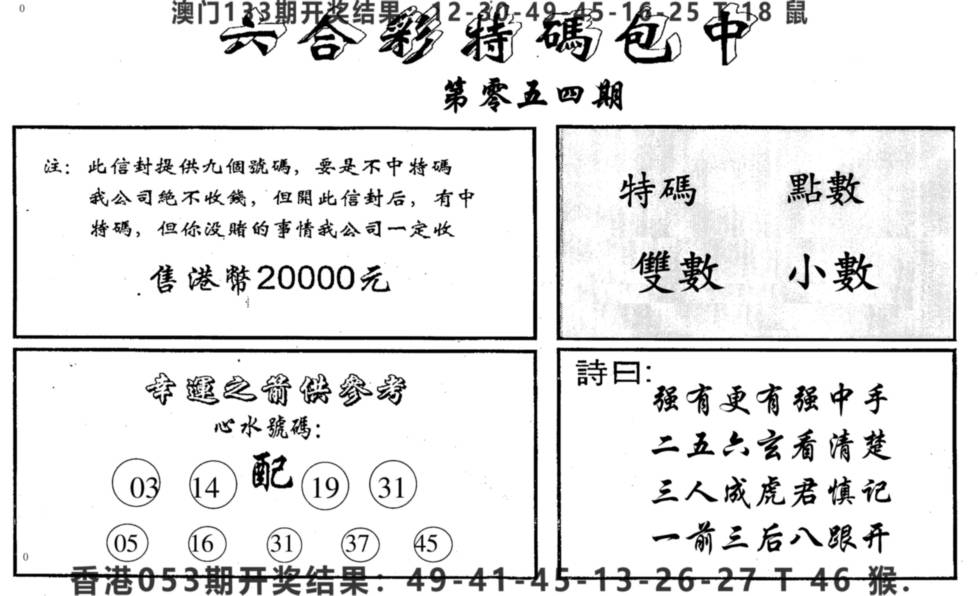 澳门133期开奖结果：12-30-49-45-16-25 T 18 鼠
六合彩特碼包中
第零五四期
注：此信封提供九個號碼，要是不中特碼
我公司絕不收錢，但開此信封后，有中
特碼，但你没賭的事情我公司一定收
售港幣20000元
特碼 點數
雙數 小數
幸運之前供參考
心水號碼：
配
03 14 19 31
05 16 31 37 45
詩曰：
强有更有强中手
二五六玄看清楚
三人成虎君慎记
一前三后八跟开
香港053期开奖结果：49-41-45-13-26-27 T 46 猴.
0
0